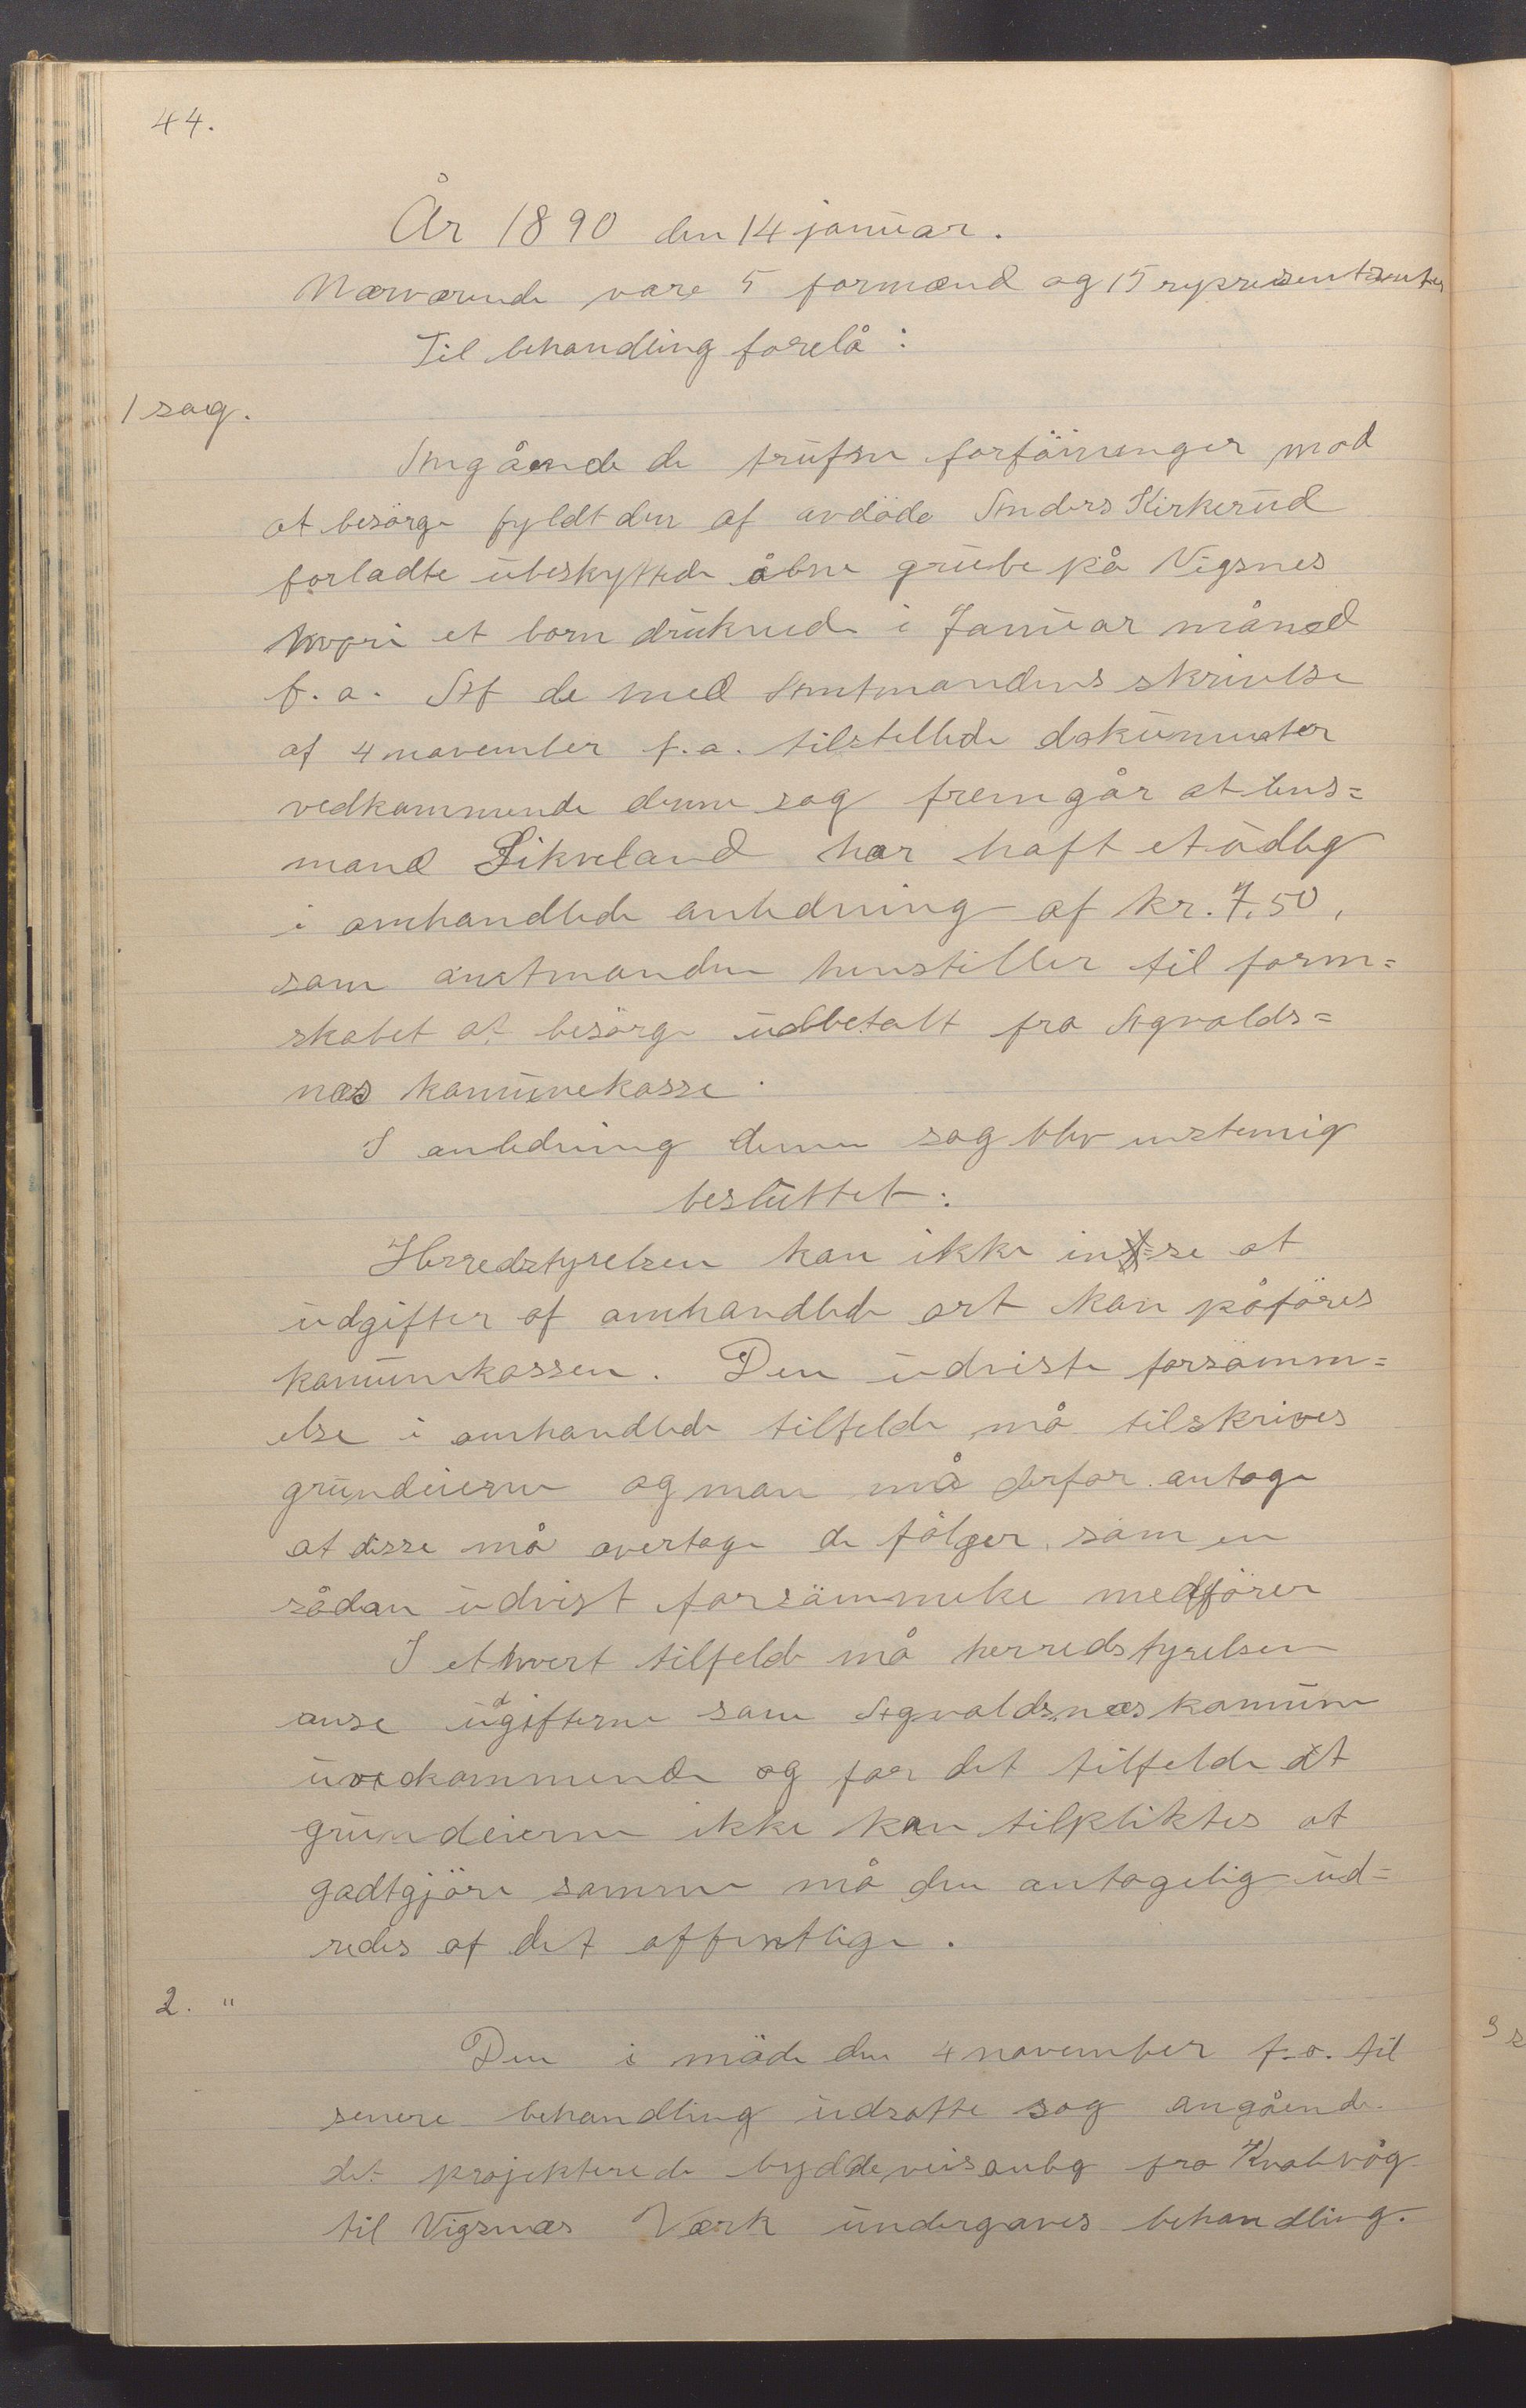 44.
År 1890 den 14 januar.
Nærværende vare 5 formænd og 15 repræsentanter
Til behandling forelå:
1 sag.
Angående de trufne forföininger mod
at besörge fyldt den af avdöde Anders Kirkerud
forladte ubeskyttede åbne grube på Vigsnes
hvori et barn druknede i Januar måned
f. a. Af de med Amtmandens skrivelse
af 4 november f. a. tilstillede dokumenter
vedkommende denne sag fremgår at lens=
mand Likveland har haft et udlæg
i omhandlede anledning af kr. 7,50,
som amtmanden henstiller til form=
skabet at besörge udbetalt fra Agvalds=
næs komunekasse.
I anledning denne sag blev enstemig
besluttet:
Herredstyrelsen kan ikke indse at
udgifter af omhandlede art kan påföres
komunekassen. Den udviste forsömm=
else i omhandlede tilfelde må tilskrives
grundeierne og man må derfor antage
at disse må overtage de fölger som en
sådan udvist forsömmelse medförer
I ethvert tilfelde må herredstyrelsen
anse udgifterne som Agvaldsnæs komune
uvedkommende og for det tilfelde at
grundeierne ikke kan tilpliktes at
godtgjöre samme må den antagelig ud=
redes af det offentlige.
2. "
Den i möde den 4 november f. a. til
senere behandling udsatte sag angående
det projekterede bygdeveisanlæg fra Kvalevåg
til Vigsnæs Værk undergaves behandling.
3 s